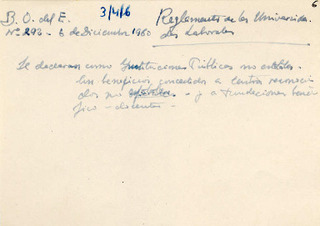 6
B. O. del E.
3/4/6
Reglamento de las Universida-
des Laborales
Nº 292 - 6 de Diciembre 1960
Se declaran como Instituciones Públicas no
los beneficios concedidos a centros reconoci
dos por - y a Fundaciones benéf
fico - docentes -